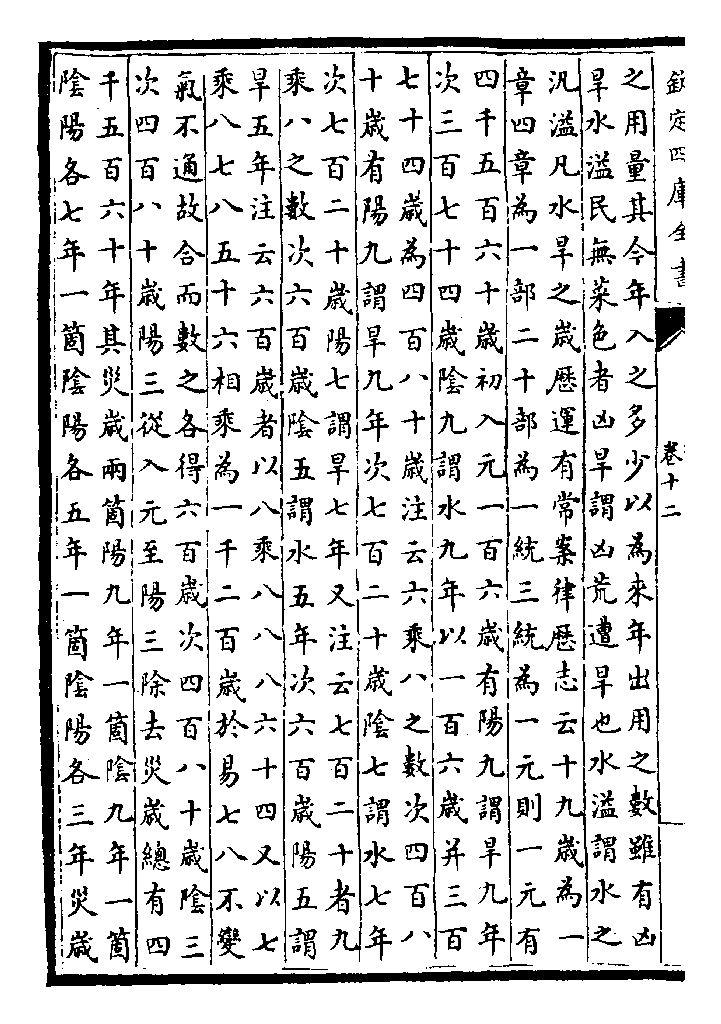 欽定四庫全書
卷十二
之用量其今年入之多少以為來年出用之數雖有凶
旱水溢民無菜色者凶旱謂凶荒遭旱也水溢謂水之
汎溢凡水旱之歲歴運有常案律歴志云十九歲為一
章四章為一部二十部為一統三統為一元則一元有
四千五百六十歲初入元一百六歲有陽九謂旱九年
次三百七十四歲陰九謂水九年以一百六歲并三百
七十四歲為四百八十歲注云六乘八之數次四百八
十歲有陽九謂旱九年次七百二十歲陰七謂水七年
次七百二十歲陽七謂旱七年又注云七百二十者九
乘八之數次六百歲陰五謂水五年次六百歲陽五謂
旱五年注云六百歲者以八乘八八八六十四又以七
乘八七八五十六相乘為一千二百歲於易七八不變
氣不通故合而數之各得六百歲次四百八十歲陰三
次四百八十歲陽三從入元至陽三除去災歲總有四
千五百六十年其災歲兩箇陽九年一箇陰九年一箇
陰陽各七年一箇陰陽各五年一箇陰陽各三年災歲